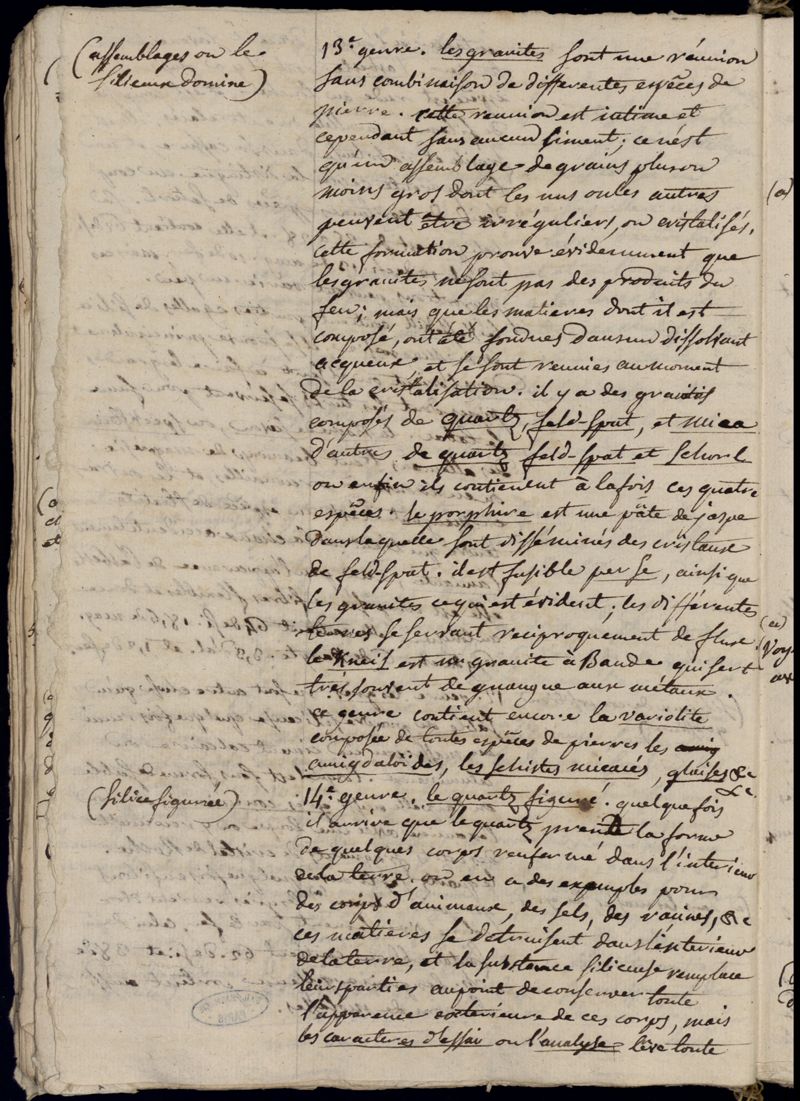 (assemblages ou le
silieux domine)
13e genre. les granites sont une réunion
sans combinaison de differentes espêces de
pierre. cette reunion est intime et
cependant sans aucun siment; ce n'est
qu'un assemblage de grains plus ou
moins gros dont les uns ou les autres
peuvent être irréguliers, ou cristalisés.
cette formation prouve évidemment que
les granites ne sont pas des produits du
feu; mais que les matieres dont il est
composé, ont été fondues dans un dissolvant
acqueux et se sont reunies au moment
de la cristalisation. il y a des granits
composés de quartz, feld-spat, et mica
d'autres de quartz feld-spat et schorl
ou enfin ils contienent à la fois ces quatre
espêces. le porphire est une pâte de jaspe
dans laquelle sont disséminés des cristaux
de feld-spat. il est fusible per se, ainsi que
les granites ce qui est évident; les différentes
terres se servant reciproquement de flux.
le Kneis est un granite à Bande qui sert
trés souvent de guangue aux métaux.
ce genre contient encore la variolite
composée de toutes espêces de pierres les
amigdaloïdes, les schistes micacés, glaises &c
&c.
(silice figurée)
14e genre. le quartz figuré. quelque fois
il arrive que le quartz prend la forme
de quelques corps renfermé dans l'interieur
de la terre. on en a des exemples pour
des corps d'animaux, des sels, des racines, &c
ces matieres se detruisent dans l'interieur
de la terre, et la substance silieuse remplace
leurs parties au point de conserver toute
l'apparence exterieure de ces corps, mais
les caracteres d'essai ou l'analyse lève toute
(a)
(a)
Voy